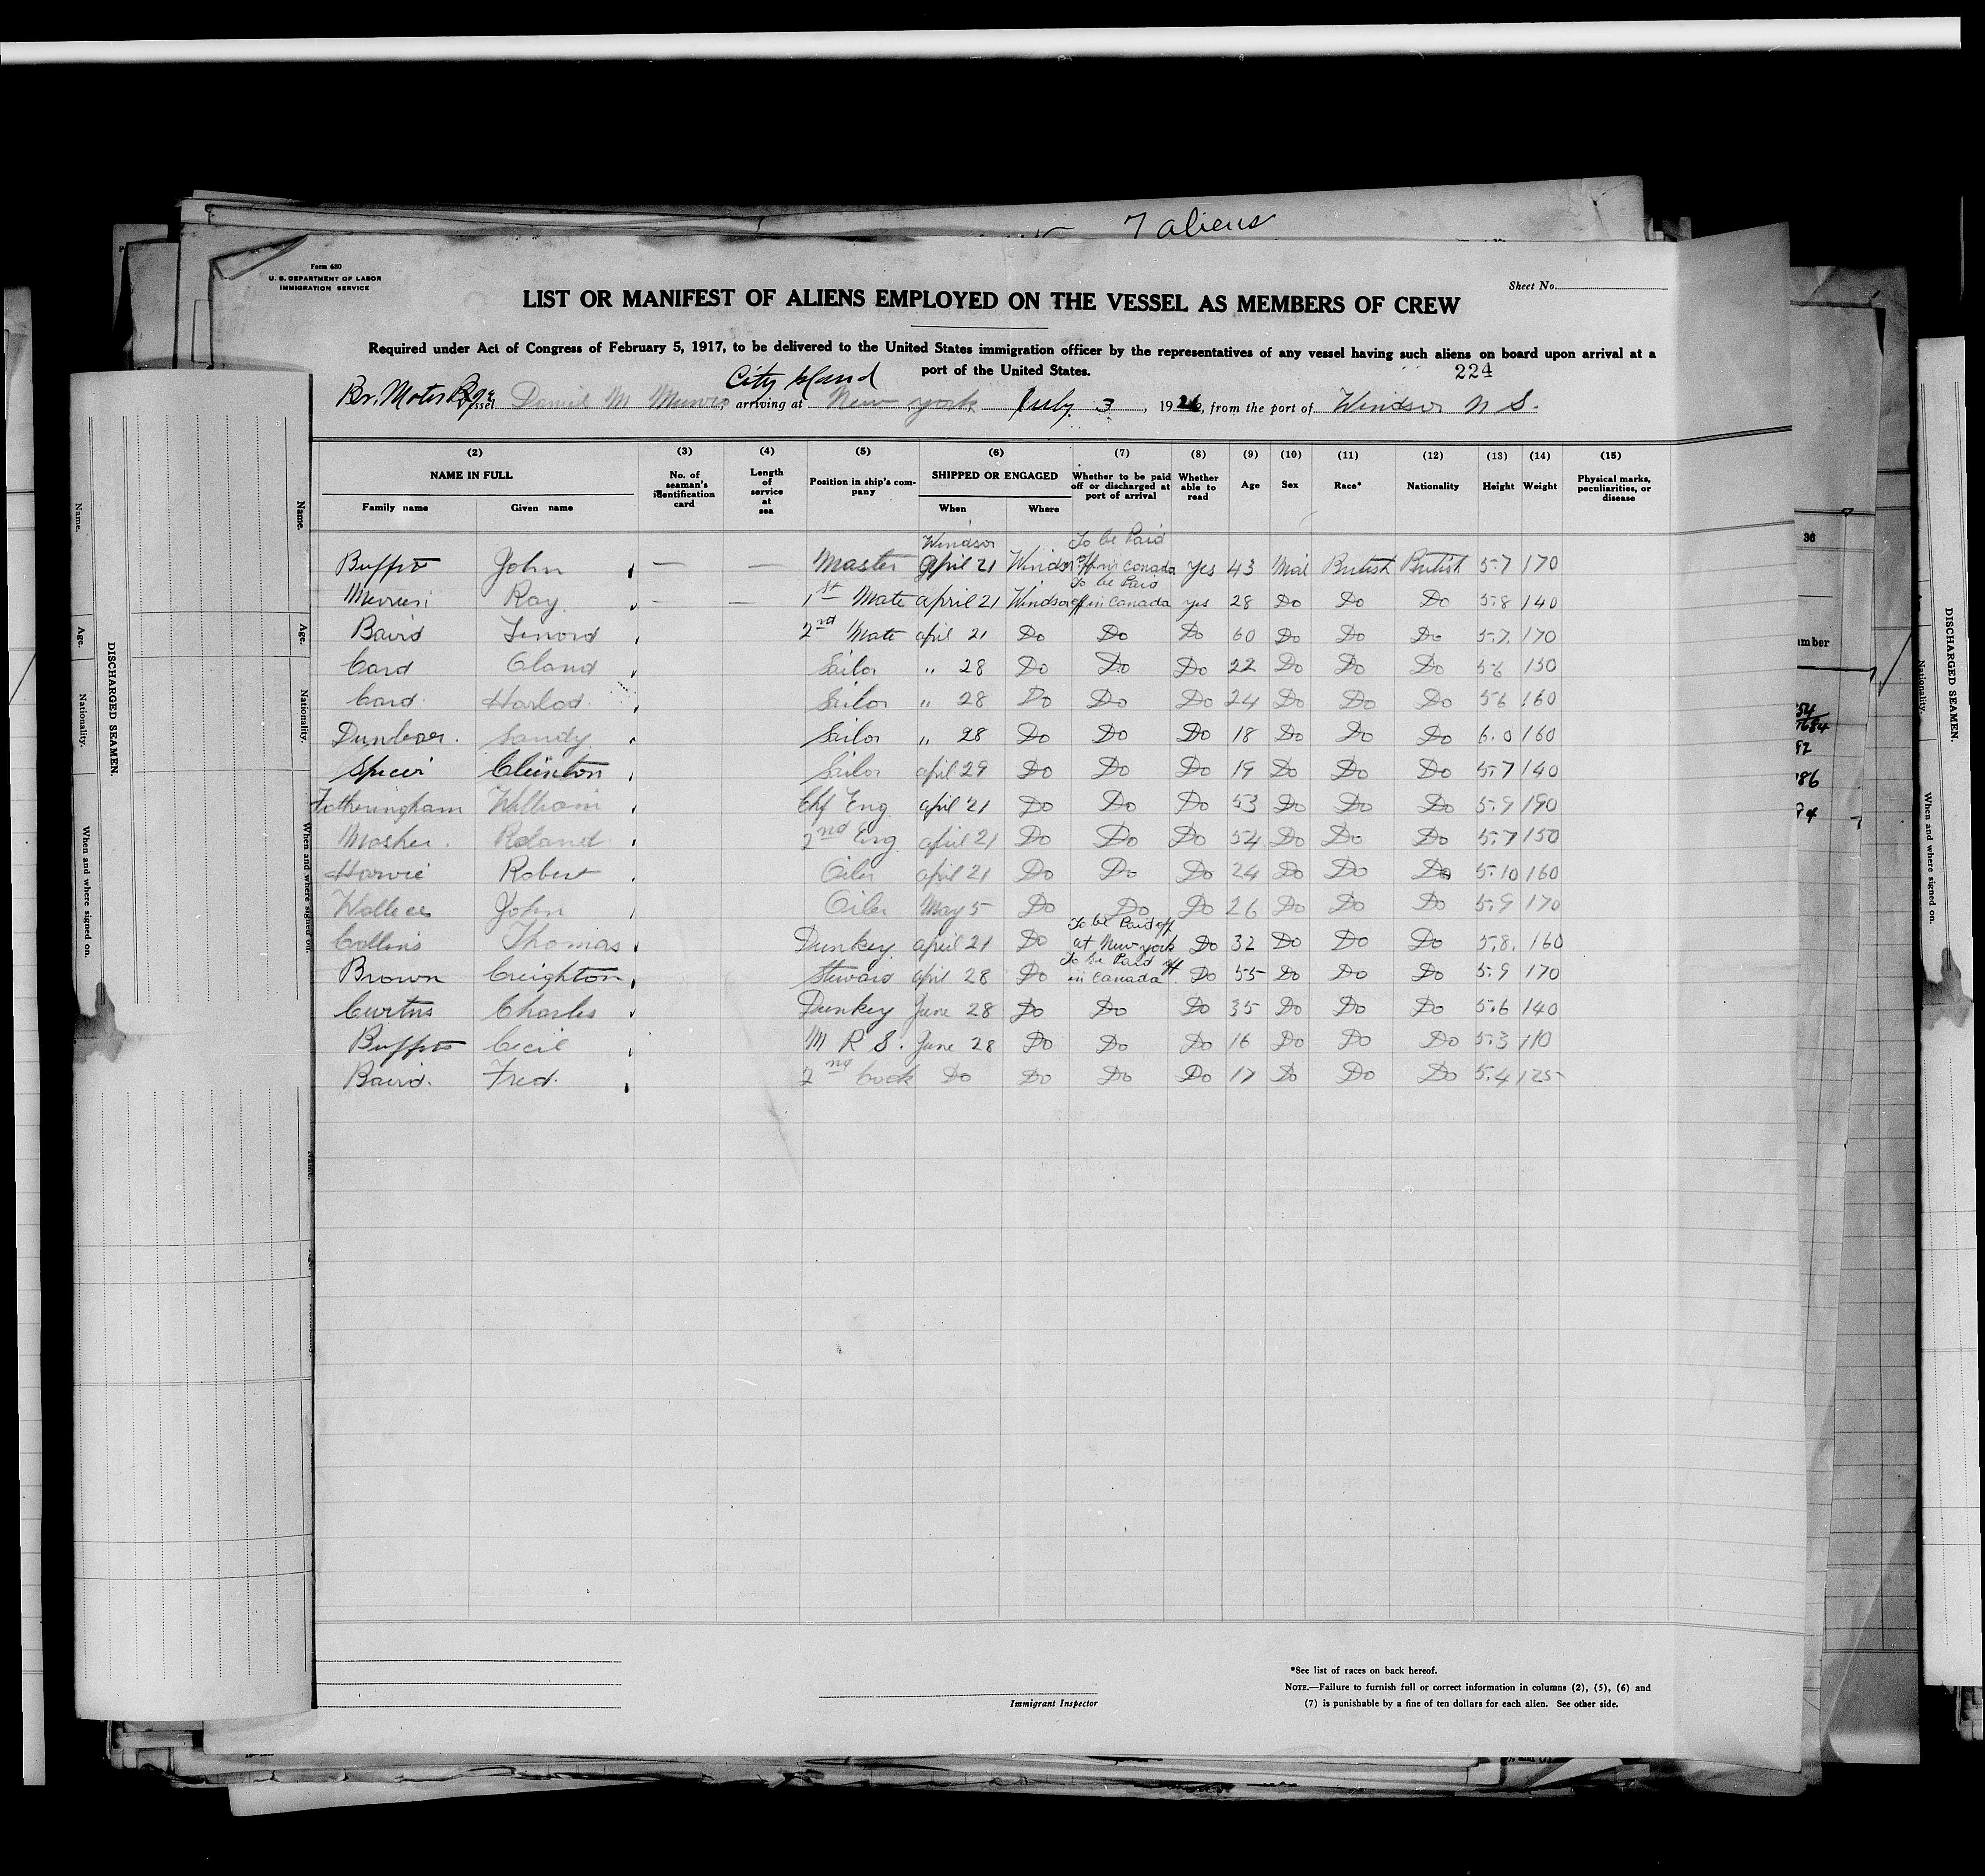 7 aliens
Form 680
U. S. DEPARTMENT OF LABOR
IMMIGRATION SERVICE
Sheet No.
LIST OR MANIFEST OF ALIENS EMPLOYED ON THE VESSEL AS MEMBERS OF CREW
Required under Act of Congress of February 5, 1917, to be delivered to the United States immigration officer by the representatives of any vessel having such aliens on board upon arrival at a
port of the United States.
224
City Island
Br. Motor Vessel Daniel M Munro, arriving at New york, July 3, 19 , from the port of Windsor N S.
(2) (3) (4) (5) (6) (7) (8) (9) (10) (11) (12) (13) (14) (15)
NAME IN FULL No. of seaman's identification card Length of service at sea Position in ship's company SHIPPED OR ENGAGED Whether to be paid off or discharged at port of arrival Whether able to read Age Sex Race* Nationality Height Weight Physical marks, peculiarities, or disease
Family name Given name When Where
Windsor To be Paid
John — — Master April 21 Windsor off in Canada yes 43 Mail British British 5-7 170
To be Paid
Ray — — 1st Mate april 21 Windsor off in Canada yes 28 Do Do Do 5-8 140
Baird Lenord 2nd Mate april 21 Do Do Do 60 Do Do Do 5-7 170
Card Sailor " 28 Do Do Do 22 Do Do Do 5 6 150
Card Harlod Sailor " 28 Do Do Do 24 Do Do Do 5 6 160
Sandy Sailor " 28 Do Do Do 18 Do Do Do 6.0 160
Spicer Clinton Sailor april 29 Do Do Do 19 Do Do Do 5-7 140
Fotheringham William Chf Eng april 21 Do Do Do 53 Do Do Do 5-9 190
Mosher Roland 2nd Eng april 21 Do Do Do 54 Do Do Do 5-7 150
Harvie Robert Oiler april 21 Do Do Do 24 Do Do Do 5-10 160
Wallace John Oiler May 5 Do Do Do 26 Do Do Do 5-9 170
To be Paid off
Collins Thomas Dunkey april 21 Do at New york Do 32 Do Do Do 5.8. 160
To be Paid off
Brown Creighton Steward april 28 Do in Canada Do 55 Do Do Do 5.9 170
Curtus Charles Dunkey June 28 Do Do Do 35 Do Do Do 5.6 140
Cecil M R S. June 28 Do Do Do 16 Do Do Do 5.3 110
Baird. Fred. 2nd Cook Do Do Do Do 17 Do Do Do 5.4 125
Immigrant Inspector
*See list of races on back hereof.
NOTE.—Failure to furnish full or correct information in columns (2), (5), (6) and
(7) is punishable by a fine of ten dollars for each alien. See other side.
DISCHARGED SEAMEN.
Name.
Age.
Nationality.
When and where signed on.
Name.
Age.
Nationality.
When and where signed on.
36
DISCHARGED SEAMEN.
Nationality.
When and where signed on.